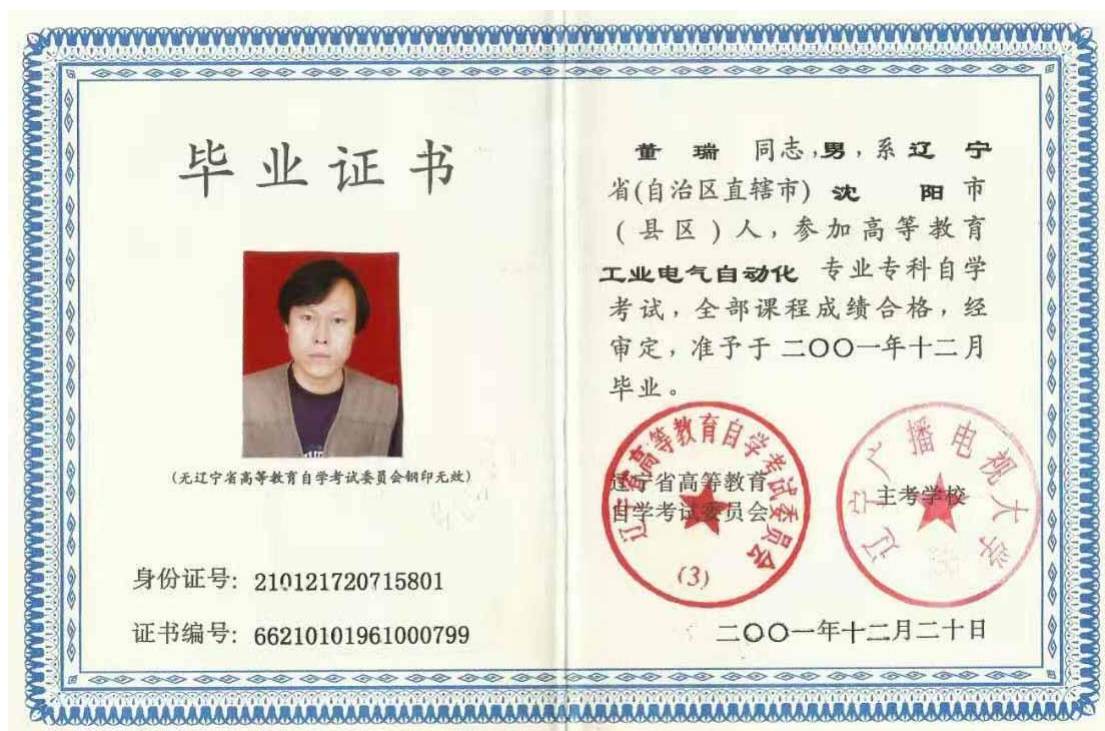 毕业证书
(无辽宁省高等教育自学考试委员会钢印无效)
身份证号: 210121720715801
证书编号: 66210101961000799
董 瑞 同志,男,系辽 宁
省(自治区直辖市) 沈 阳 市
(县区)人,参加高等教育
工业电气自动化 专业专科自学
考试,全部课程成绩合格,经
审定,准予于二〇〇一年十二月
毕业。
辽宁省高等教育自学考试委员会
辽宁省高等教育
自学考试委员会
(3)
辽宁广播电视大学
主考学校
二〇〇一年十二月二十日